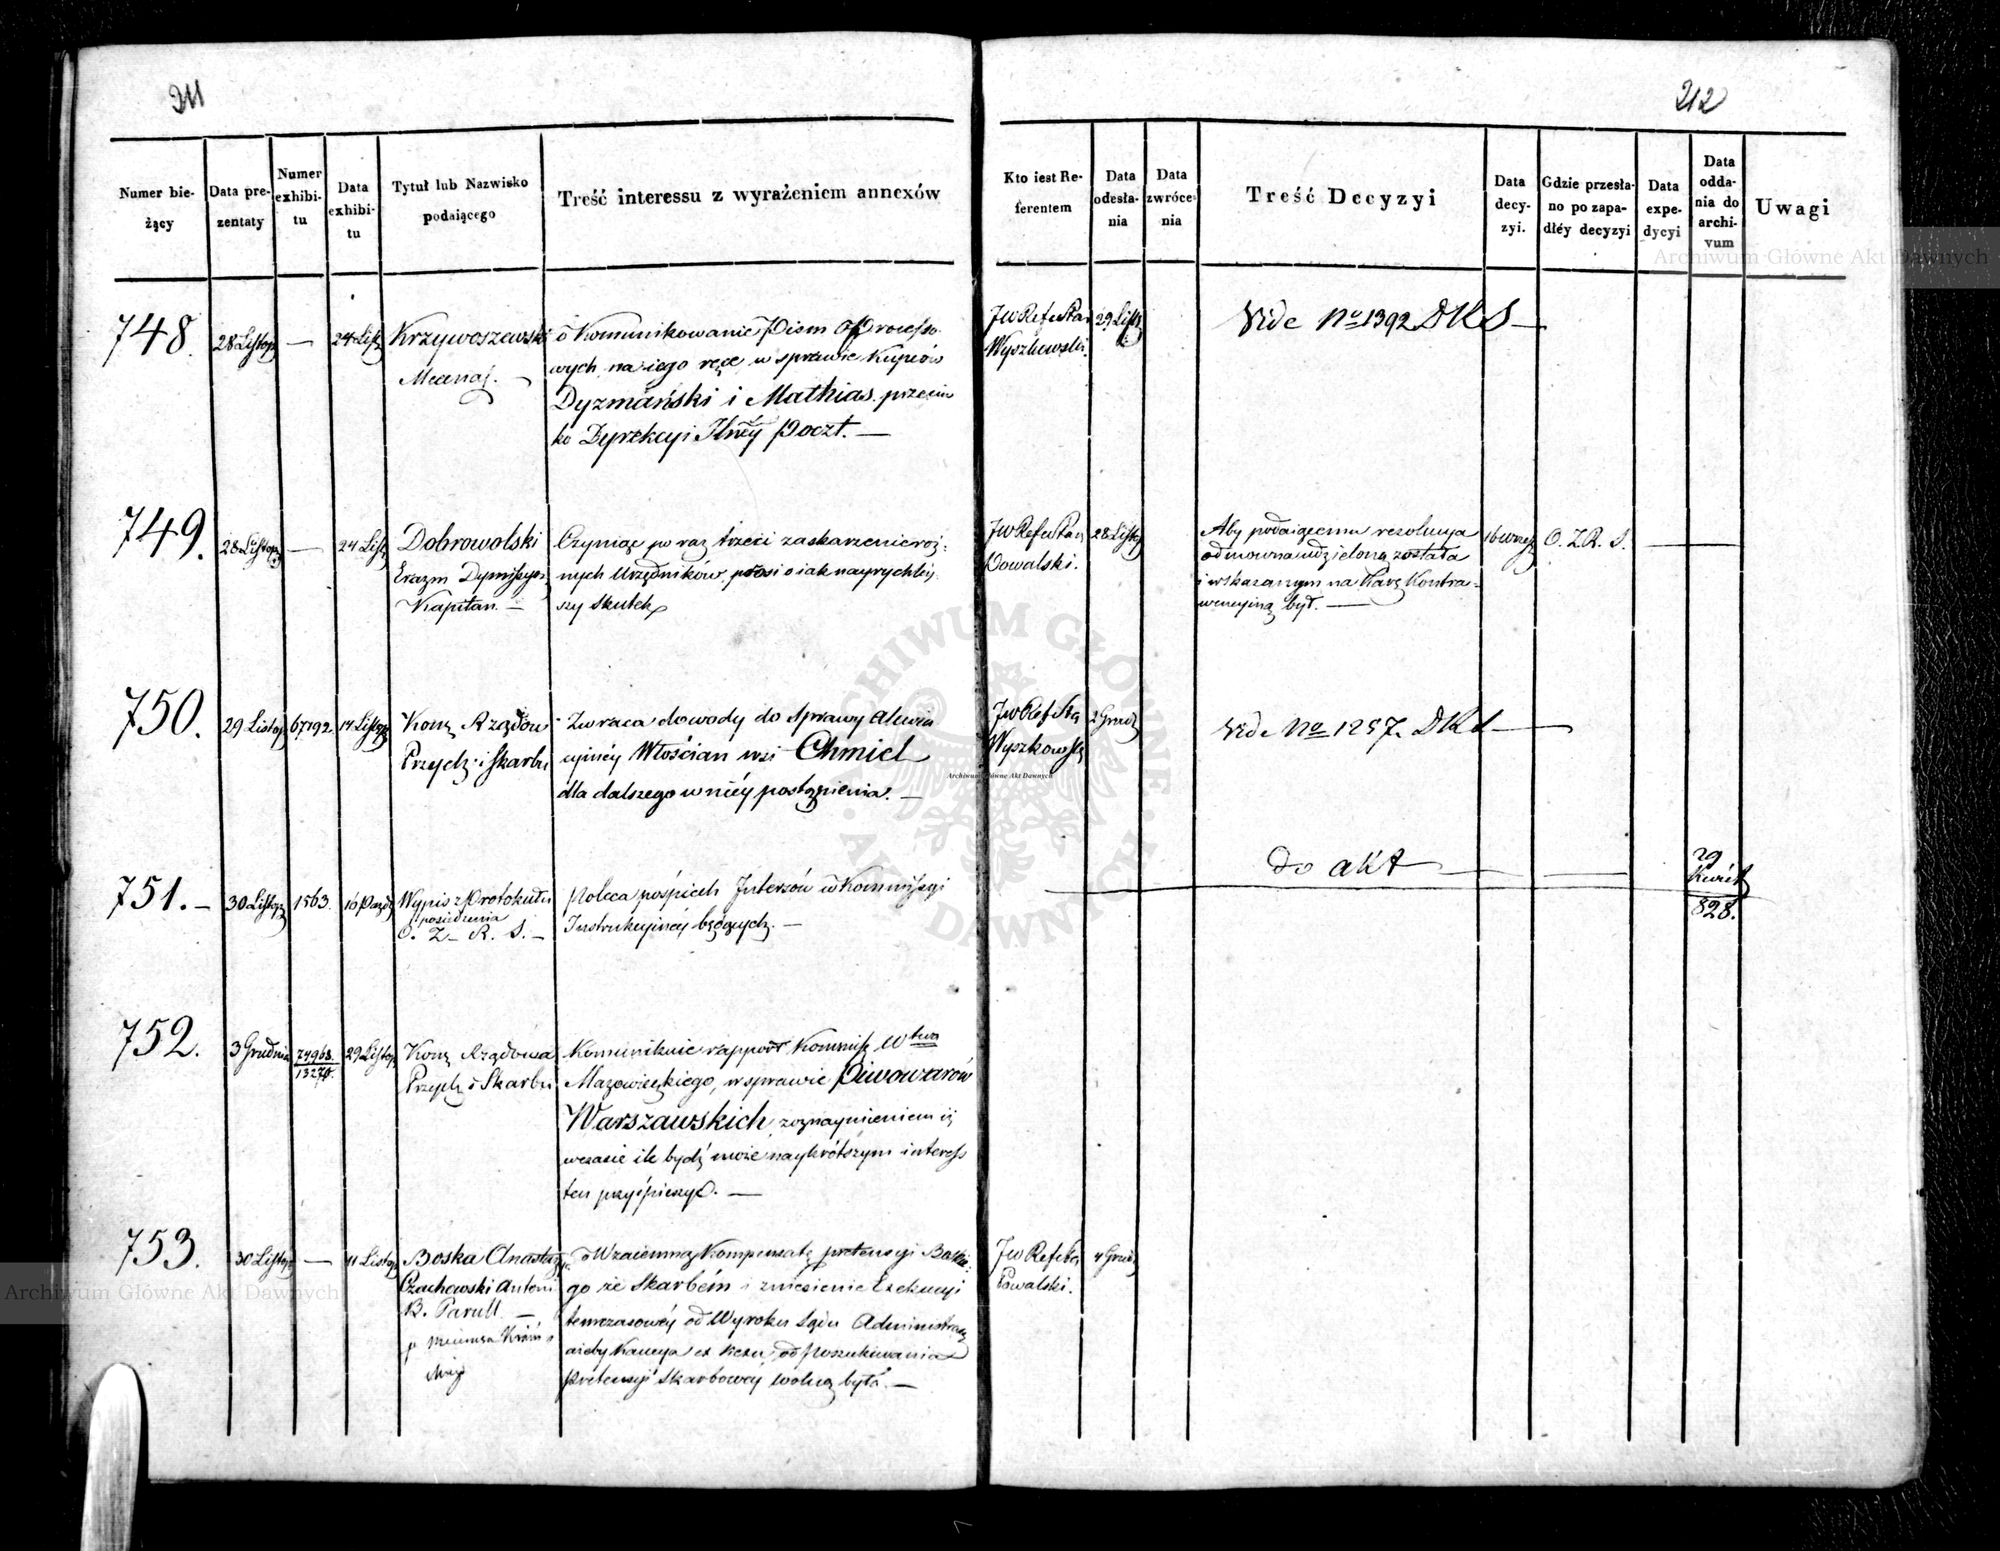 211
212
Numer bie-
żący
Data pre-
zentaty
Numer
exhibi-
tu
Data
exhibi-
tu
Tytuł lub Nazwisko
podaiącego
Treść interessu z wyrażeniem annexów
Kto iest Re-
ferentem
Data
odesła-
nia
Data
zwróce-
nia
Treść Decyzyi
Data
decy-
zyi.
Gdzie przesła-
no po zapa-
dłéy decyzyi
Data
expe-
dycyi
Data
odda-
nia do
archi-
vum
Uwagi
748.
28 Listop
—
24 List
Krzywoszewski
Mecenas. —
o Kommunikowanie Pism Processo-
wych na iego ręce, w sprawie Kupców
Dyzmański i Mathias przeciw
ko Dyrekcyi Jlnéy Poczt. —
JW Refer Stan
Wyszkowski.
29 List
Vide No 1392 DKS —
749.
28 Listop
—
24 List
Dobrowolski
Erazm Dymissyo
Kapitan. —
Czyniąc po raz trzeci zaskarzenie róż-
nych Urzędników, prosi o iak nayrychley-
szy skutek
JW Refer Stan
Kowalski.
28 Listop
Aby podaiącemu rezolucya
odmowna udzieloną została
i wskazanym na Karę Kontra-
wencyiną był. —
16 wrześ
O. Z. R. S.
750.
29 Listop
67192.
14 Listop
Kom Rządow
Przych. i Skarbu
Zwraca dowody do sprawy
cyinéy Włościan wsi Chmiel
dla dalszego w niéy postąpienia. —
JW Ref Sta
Wyszkowski
2 Grud
Vide No 1257. DKS —
751. —
30 Listop
1563.
16 Paźdz
Wypis z Protokułu
posiedzenia
O. Z. R. S. —
Poleca pośpiech Interssów w Kommissyi
Instrukcyinéy będących. —
do akt —
29
Kwiet
828.
752.
3 Grudnia
74968.
13270.
29 Listop
Kom Rządowa
Przych i Skarbu
Kommunikuie rapport Kommiss Wtwa
Mazowieckiego, w sprawie Piwowarów
Warszawskich, z oznaymieniem iż
wczasie ile bydź może naykrótszym interess
ten przyśpieszyć. —
753.
30 Listop
—
11 Listop
Boska Anastaz
Czachowski Antoni
B. Parull —
o Wzaiemną Kompensatę pretensyi Boski-
go ze Skarbém i zniesienie Exekucyi
temczasowéy od Wyroku Sądu Administrac
aieby Kaucya ex nexu, od poszukiwania
Pretensyi Skarbowéy wolną była. —
JW Refer Sta
Kowalski.
4 Grud
Archiwum Główne Akt Dawnych
Archiwum Główne Akt Dawnych
Archiwum Główne Akt Dawnych
ARCHIWUM GŁÓWNE · AKT DAWNYCH ·